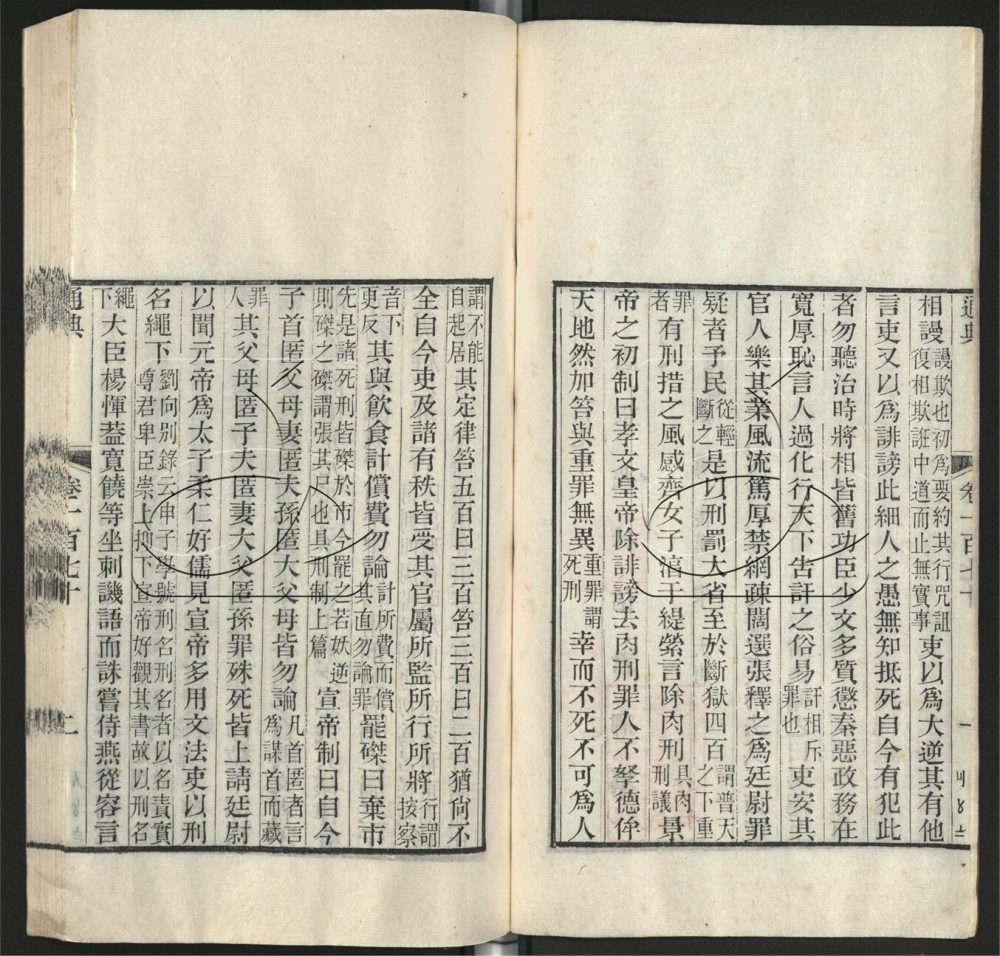 通典
卷一百七十
一
相謾謾欺也初爲要約其行咒詛復相欺誑中道而止無實事吏以爲大逆其有他
言吏又以爲誹謗此細人之愚無知抵死自今有犯此
者勿聽治時將相皆舊功臣少文多質懲秦惡政務在
寬厚恥言人過化行天下告訐之俗易訐相斥罪也吏安其
官人樂其業風流篤厚禁網疎闊選張釋之爲廷尉罪
疑者予民從輕斷之是以刑罰大省至於斷獄四百謂普天之下重
罪者有刑措之風感齊女子淳于緹縈言除肉刑具肉刑議景
帝之初制曰孝文皇帝除誹謗去肉刑罪人不孥德侔
天地然加笞與重罪無異重罪謂死刑幸而不死不可爲人
謂不能自起居其定律笞五百曰三百笞三百曰二百猶尙不
全自今吏及諸有秩皆受其官屬所監所行所將行謂按察
音下更反其與飲食計償費勿論計所費而償其直勿論罪罷磔曰棄市
先是諸死刑皆磔於市今罷之若妖逆則磔之磔謂張其尸也具刑制上篇宣帝制曰自今
子首匿父母妻匿夫孫匿大父母皆勿論凡首匿者言爲謀首而藏
罪人其父母匿子夫匿妻大父匿孫罪殊死皆上請廷尉
以聞元帝爲太子柔仁好儒見宣帝多用文法吏以刑
名繩下劉向别錄云申子學號刑名刑名者以名責實尊君卑臣崇上抑下宣帝好觀其書故以刑名
繩下大臣楊惲蓋寬饒等坐刺譏語而誅嘗侍燕從容言
通典
卷一百七十
二